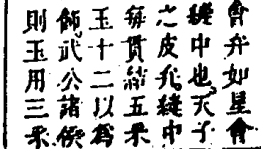 會弁如星會
縫中也天子
之皮弁縫中
每貫結五采
玉十二以為
飾武公諸侯
則玉用三采